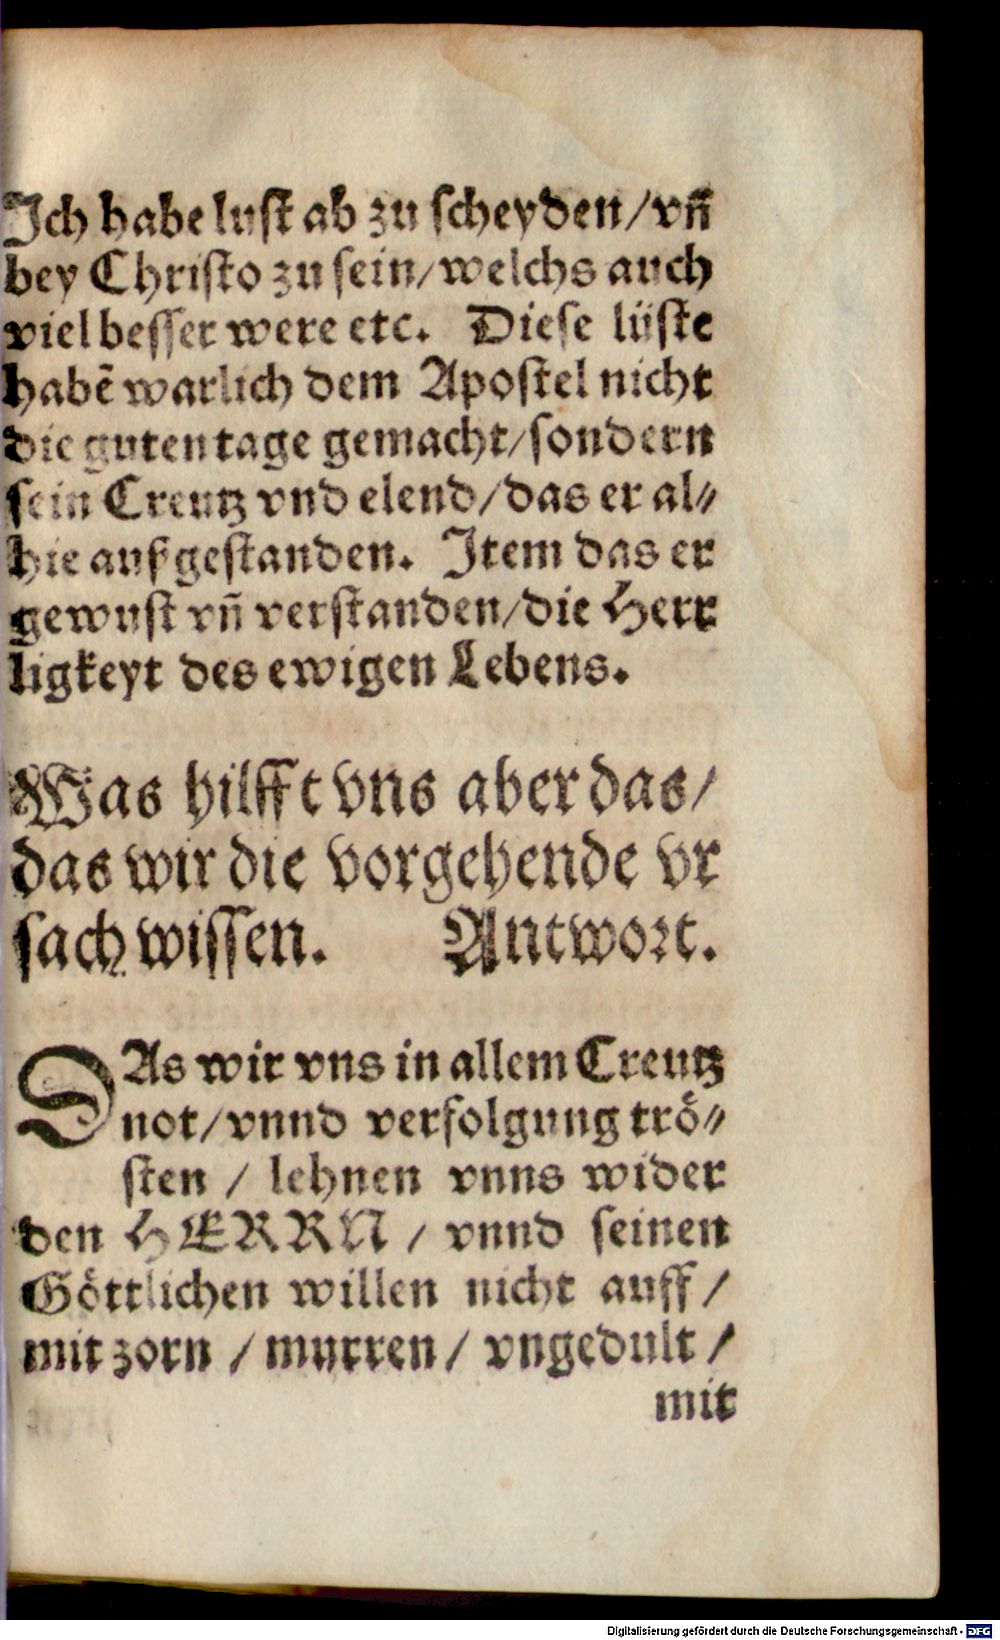 Ich habe lust ab zu scheyden/vñ
bey Christo zu sein/welchs auch
viel besser were etc. Diese lüste
habẽ warlich dem Apostel nicht
die guten tage gemacht/sondern
sein Creutz vnd elend/das er al⸗
hie außgestanden. Item das er
gewust vñ verstanden/die Herr
ligkeyt des ewigen Lebens.
Was hilfft vns aber das/
das wir die vorgehende vr
sach wissen. Antwort.
DAs wir vns in allem Creutz
not/vnnd verfolgung trö⸗
sten / lehnen vnns wider
den HERRN / vnnd seinen
Göttlichen willen nicht auff /
mit zorn / murren / vngedult /
mit
Digitalisierung gefördert durch die Deutsche Forschungsgemeinschaft - DFG